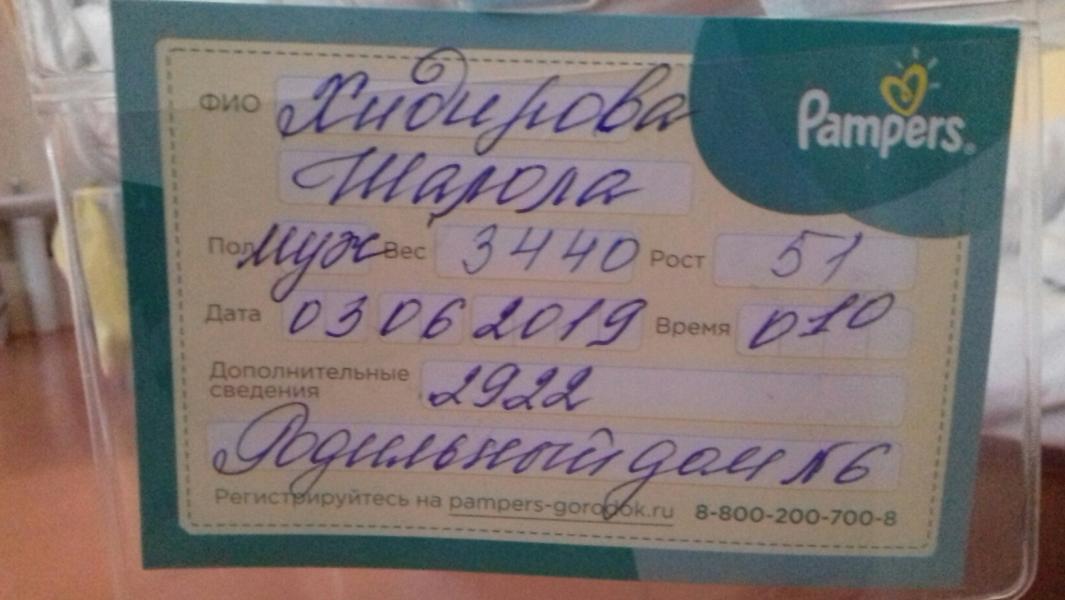 Pampers
ФИО Хидирова
Шарола
Пол муж Вес 3440 Рост 51
Дата 03 06 2019 Время 010
Дополнительные сведения 2922
Родильный дом №6
Регистрируйтесь на pampers-gorodok.ru 8-800-200-700-8